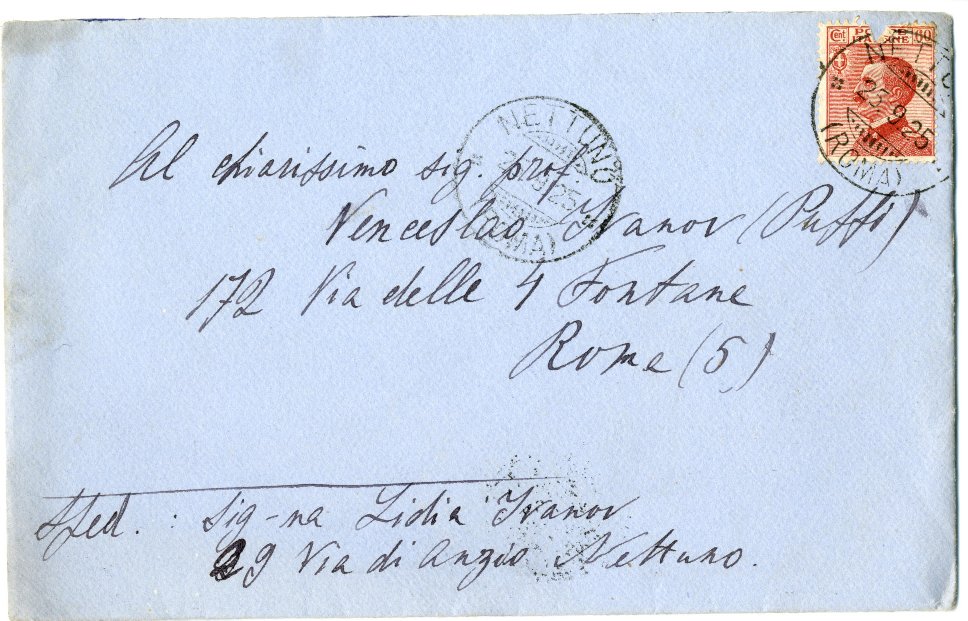 Cent PO NE 60
NETTUNO
23.9.25
(ROMA)
NETTUNO
9.25
(ROMA)
Al chiarissimo sig. prof.
Venceslao Ivanov (Puffi)
172 Via delle 4 Fontane
Roma (5)
Sped. : Sig-na Lidia Ivanov
29 Via di Anzio Nettuno.